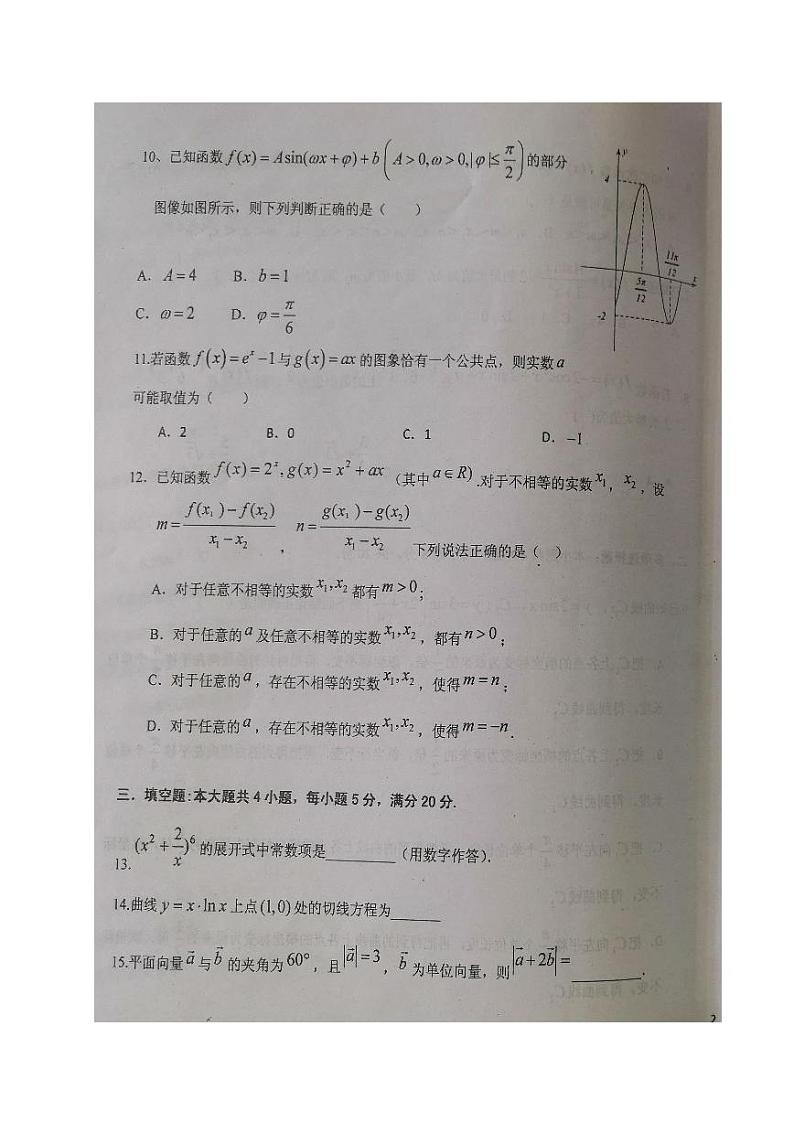 10、已知函数 f(x) = Asin(ωx+φ)+b (A>0,ω>0,|φ|≤π/2) 的部分
图像如图所示，则下列判断正确的是（ ）
y
4
11π/12
x
5π/12
-2
A. A=4 B. b=1
C. ω=2 D. φ=π/6
11.若函数 f(x)=eˣ-1与g(x)=ax 的图象恰有一个公共点，则实数a
可能取值为（ ）
A. 2 B. 0 C. 1 D. -1
12. 已知函数 f(x)=2ˣ, g(x)=x²+ax （其中 a∈R).对于不相等的实数 x₁，x₂，设
m=(f(x₁)-f(x₂))/(x₁-x₂)， n=(g(x₁)-g(x₂))/(x₁-x₂) 下列说法正确的是（ ）
A. 对于任意不相等的实数 x₁,x₂ 都有 m>0；
B. 对于任意的 a 及任意不相等的实数 x₁,x₂，都有 n>0；
C. 对于任意的 a，存在不相等的实数 x₁,x₂，使得 m=n；
D. 对于任意的 a，存在不相等的实数 x₁,x₂，使得 m=-n.
三、填空题:本大题共4小题，每小题5分，满分20分.
13. (x²+2/x)⁶ 的展开式中常数项是________（用数字作答).
14.曲线 y=x·ln x 上点 (1,0) 处的切线方程为______
15.平面向量 a⃗ 与 b⃗ 的夹角为 60°，且 |a⃗|=3，b⃗ 为单位向量，则 |a⃗+2b⃗|= ________.
2